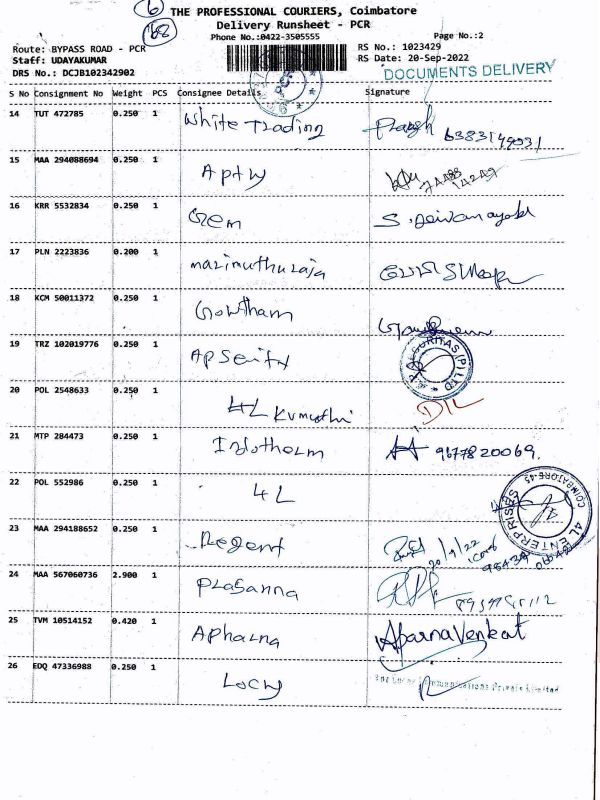 6
68
THE PROFESSIONAL COURIERS, Coimbatore
Delivery Runsheet - PCR
Phone No.:0422-3505555 Page No.:2
Route: BYPASS ROAD - PCR RS No.: 1023429
Staff: UDAYAKUMAR RS Date: 20-Sep-2022
DRS No.: DCJB102342902 DOCUMENTS DELIVERY
S No Consignment No Weight PCS Consignee Details Signature
14 TUT 472785 0.250 1 White Trading
15 MAA 294088694 0.250 1
16 KRR 5532834 0.250 1 Gem
17 PLN 2223836 0.200 1 marimuthuraja
18 KCM 50011372 0.250 1 Gowtham
19 TRZ 102019776 0.250 1
20 POL 2548633 0.250 1 4L
21 MTP 284473 0.250 1 9677820069
22 POL 552986 0.250 1 4L
4L ENTERPRISES COIMBATORE-45
23 MAA 294188652 0.250 1 Regent 20/9/22
24 MAA 567060736 2.900 1 Prasanna
25 TVM 10514152 0.420 1 Apharna Aparna Venkat
26 EDQ 47336988 0.250 1 Private Limited